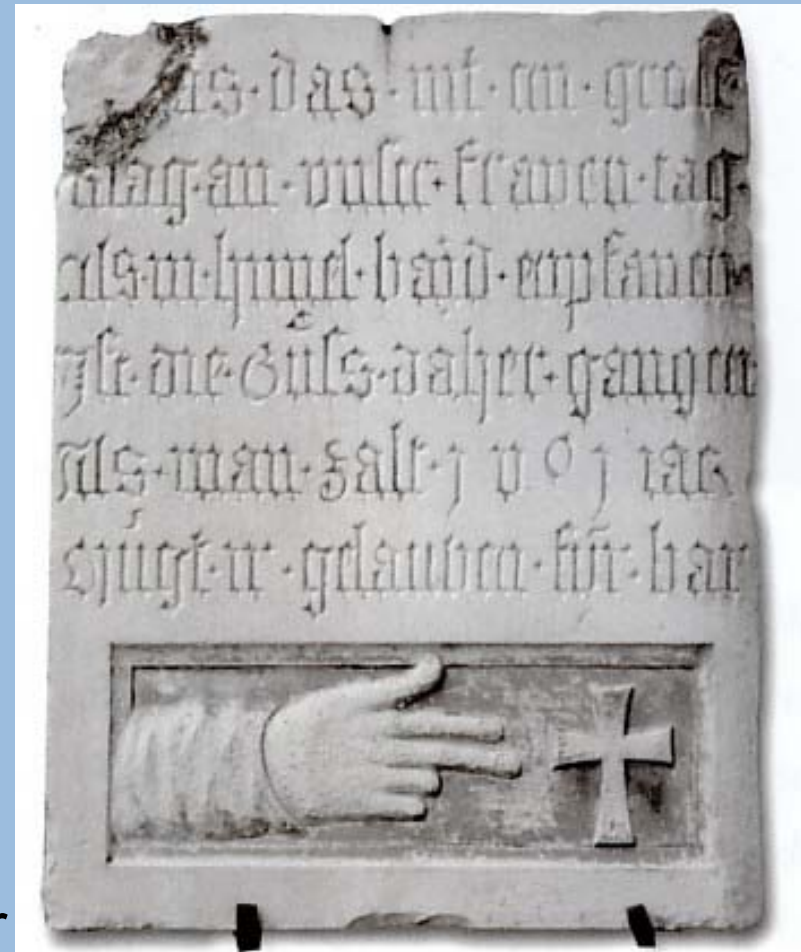 as · das · nit · ain · gross
klag · an · vnser · fraven · tag ·
als · in · himel · bard · enpfangen
Ist · die · Güss · daher · gangen
Als · man · zalt · 1501 iar
Mügt · ir · gelauben · für · bar